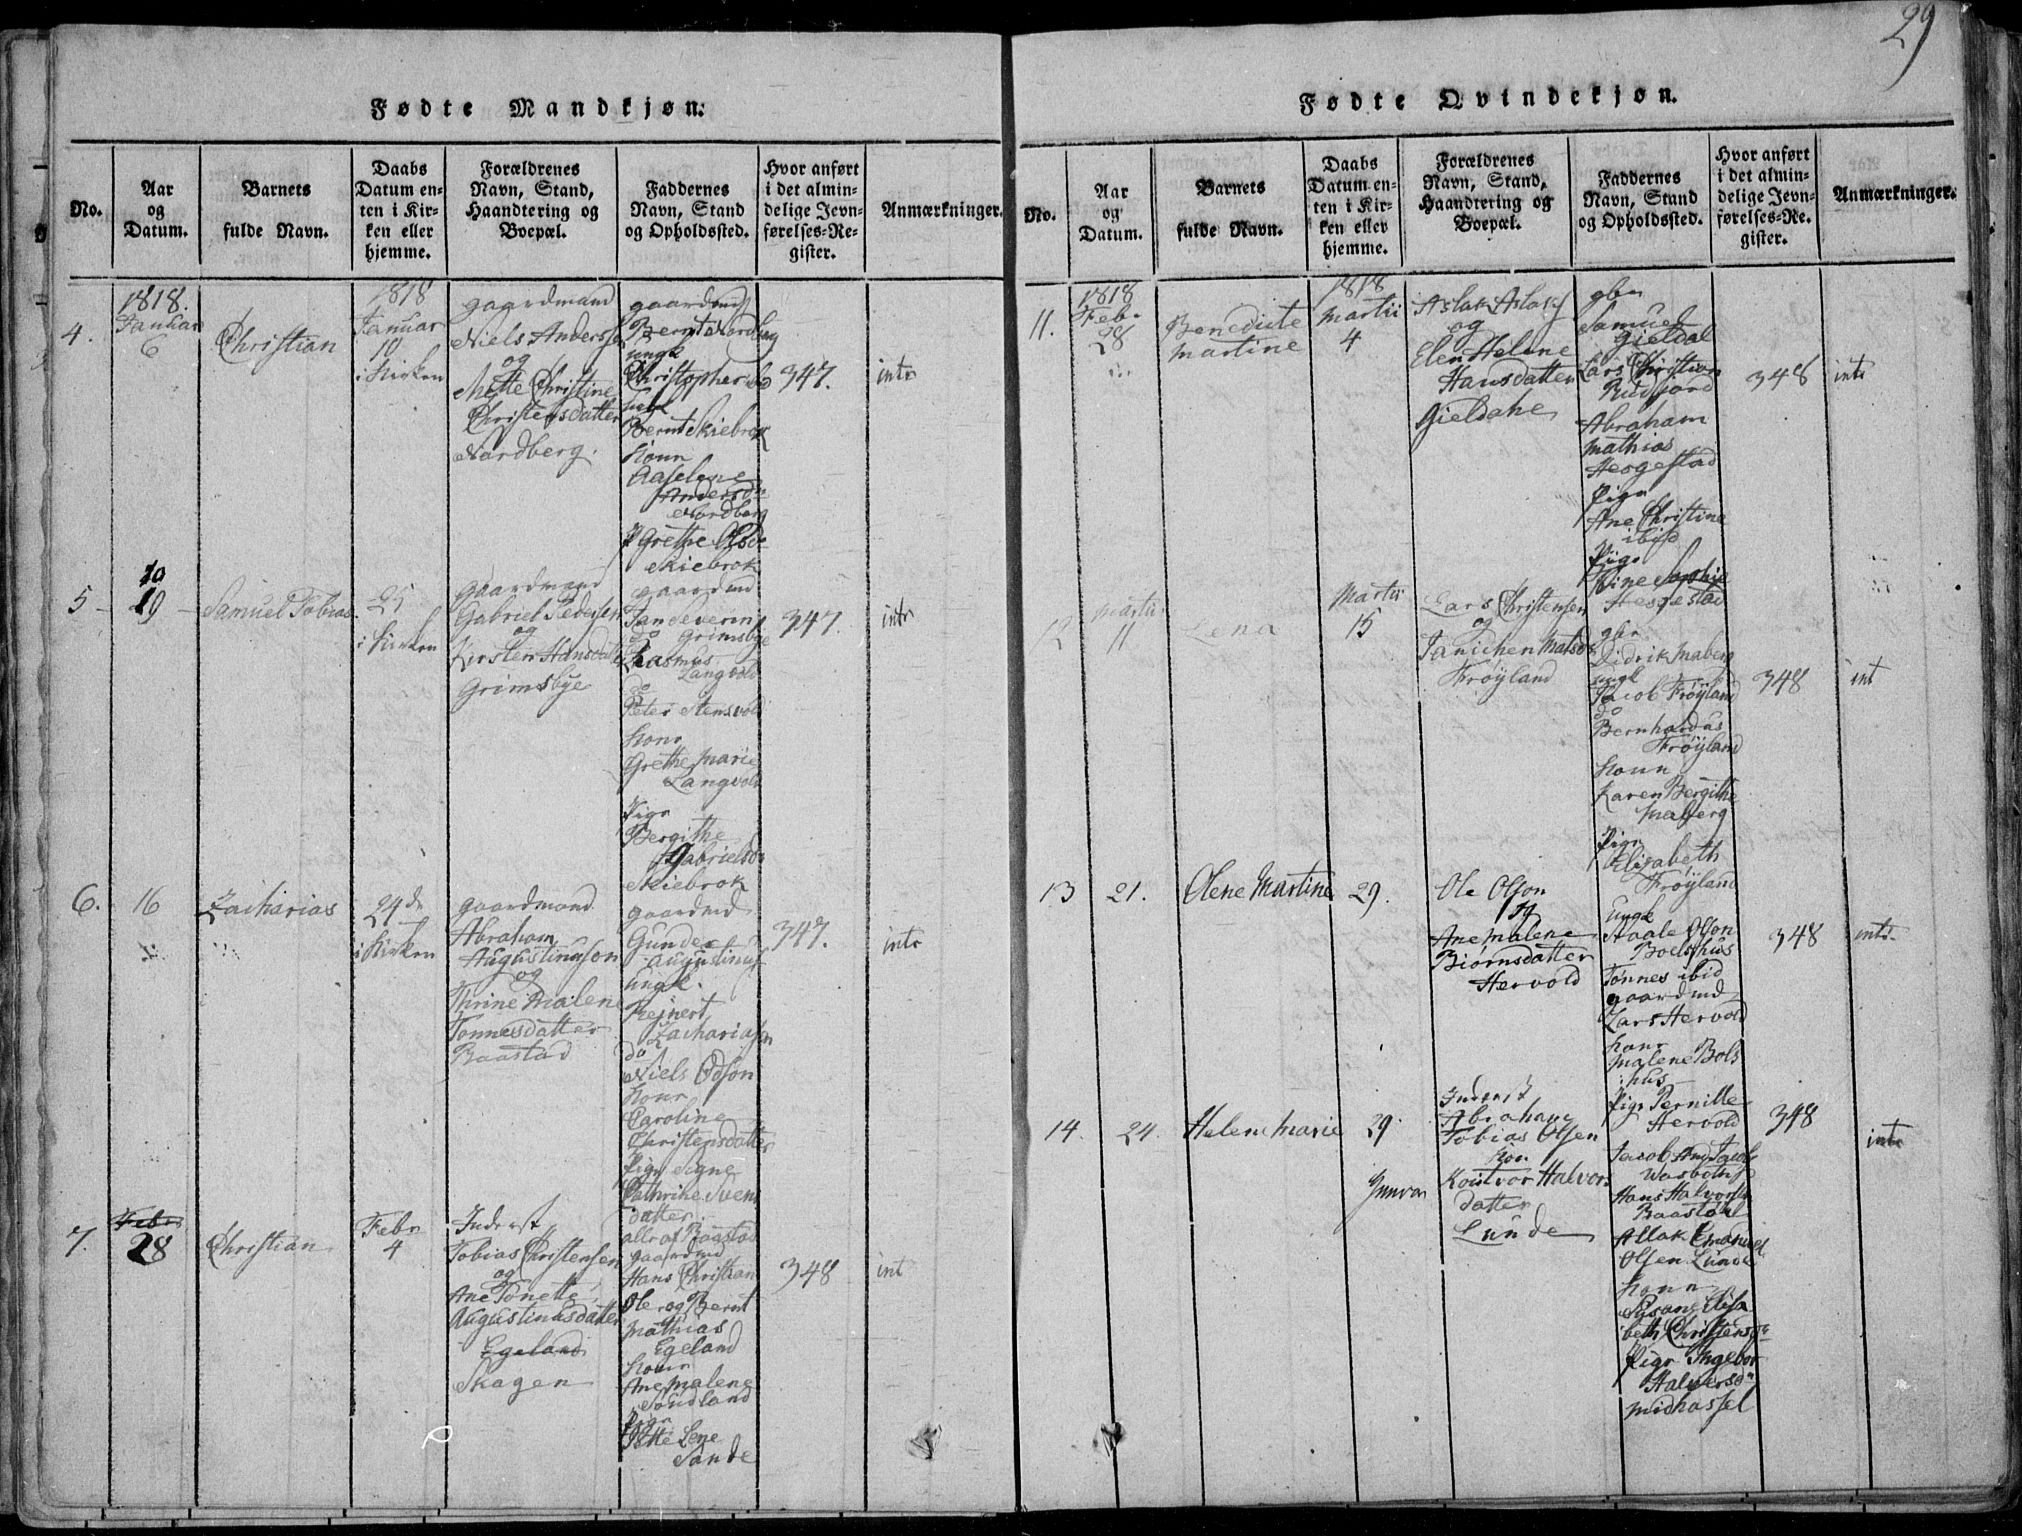 29
Fødte Mandkjøn.
No.
Aar
og
Datum.
Barnets
fulde Navn.
Daabs
Datum en-
ten i Kir-
ken eller
hjemme.
Forældrenes
Navn, Stand,
Haandtering og
Boepæl.
Faddernes
Navn, Stand
og Opholdssted.
Hvor anført
i det almin-
delige Jevn-
førelses-Re-
gister.
Anmærkninger.
4.
1818.
Januar
6
Christian
1818
Januar
10
i Kirken
gaardmand
Niels Anderss
og
Mette Christine
Christensdatter
Nordberg.
gaardmd
Bernt Nordberg
ungk
Christopher ibd
Bernt Skiebrok
Konr
Aaselene
Andersdr
Nordberg
P Grethe Olsdr
Skiebrok
347.
intr
5
10
19
Samuel Tobias
25
i Kirken
gaardmand
Gabriel Pedersen
og
Kirsten Hansdatter
Grimsbye
gaardmd
Jan Severin
do Grimsbye
Rasmus
Langvold
do
Peter Stensvold
Konr
Grethe Marie
Langvold
Pigr
Bergithe
Gabrielsdr
Skiebrok
347.
intr
6.
16
Zacharias
24de
i Kirken
gaardmand
Abraham
Augustinusson
og
Thrine Malene
Tønnesdatter
Baastad
gaardmd
Gunder
Augustinus
ungk.
Reinert
Zachariasen
do
Niels Odson
Konr
Caroline
Christensdatter
Pigr Signe
Cathrine Svens
datter
allr af Baastad
347.
intr
7.
Febr
28
Christian
Febr
4
Inderst
Tobias Christensen
og
Ane Tonette
Augustinusdatter
Egeland
Skagen
gaardmd
Hans Christian
Ole og Bernt
Mathias
Egeland
Konr
Ane Malene
Sandland
Pigr
Lene
Sande
348
int
Fødte Qvindekjøn.
No.
Aar
og
Datum.
Barnets
fulde Navn.
Daabs
Datum en-
ten i Kir-
ken eller
hjemme.
Forældrenes
Navn, Stand,
Haandtering og
Boepæl.
Faddernes
Navn, Stand
og Opholdssted.
Hvor anført
i det almin-
delige Jevn-
førelses-Re-
gister.
Anmærkninger.
11.
1818
Feb.
28
Benedicte
Martine
1818
Martii
4
Aslak Aslaks
og
Elen Helene
Hansdatter
Gieldahl
gbr
Samuel
Gieldal
Lars Christian
Rudjord
Abraham
Mathias
Hesgestad
Pigr
Ane Christine
ibid
Pigr
Trine Sophie
Hesgestad
348
intr
12
Martii
11
Lena
Martii
15
Lars Christensen
og
Janichen Matsdr
Frøyland
gbr
Didrik Maberg
ungk
Jacob Frøyland
do
Bernhardus
Frøyland
Konr
Karen Bergithe
Maberg
Pigr
Elisabeth
Frøyland
348
int
13
21.
Olene Martine
29.
Ole Olson
og
Ane Malene
Biørnsdatter
Hervold
Ungk
Staale Olson
Boelshus
Tonnes ibid
gaardmd
Lars Hervold
Konr
Malene Bols
hus
Pigr Pernille
Hervold
348
intr
14.
24.
Helene Marie
29.
Gunvor
Inderst
Abraham
Tobias Olsen
Kon
Konvor Halvors
datter
Lunde
Jacob And Jacobs
Hans Halvorsen
Baastøl
Atlak Emanuel
Olsen Lunde
Konr
Susane Elisa
beth Christensdr
Pigr Ingebor
Halversdr
Midhassel
348
intr